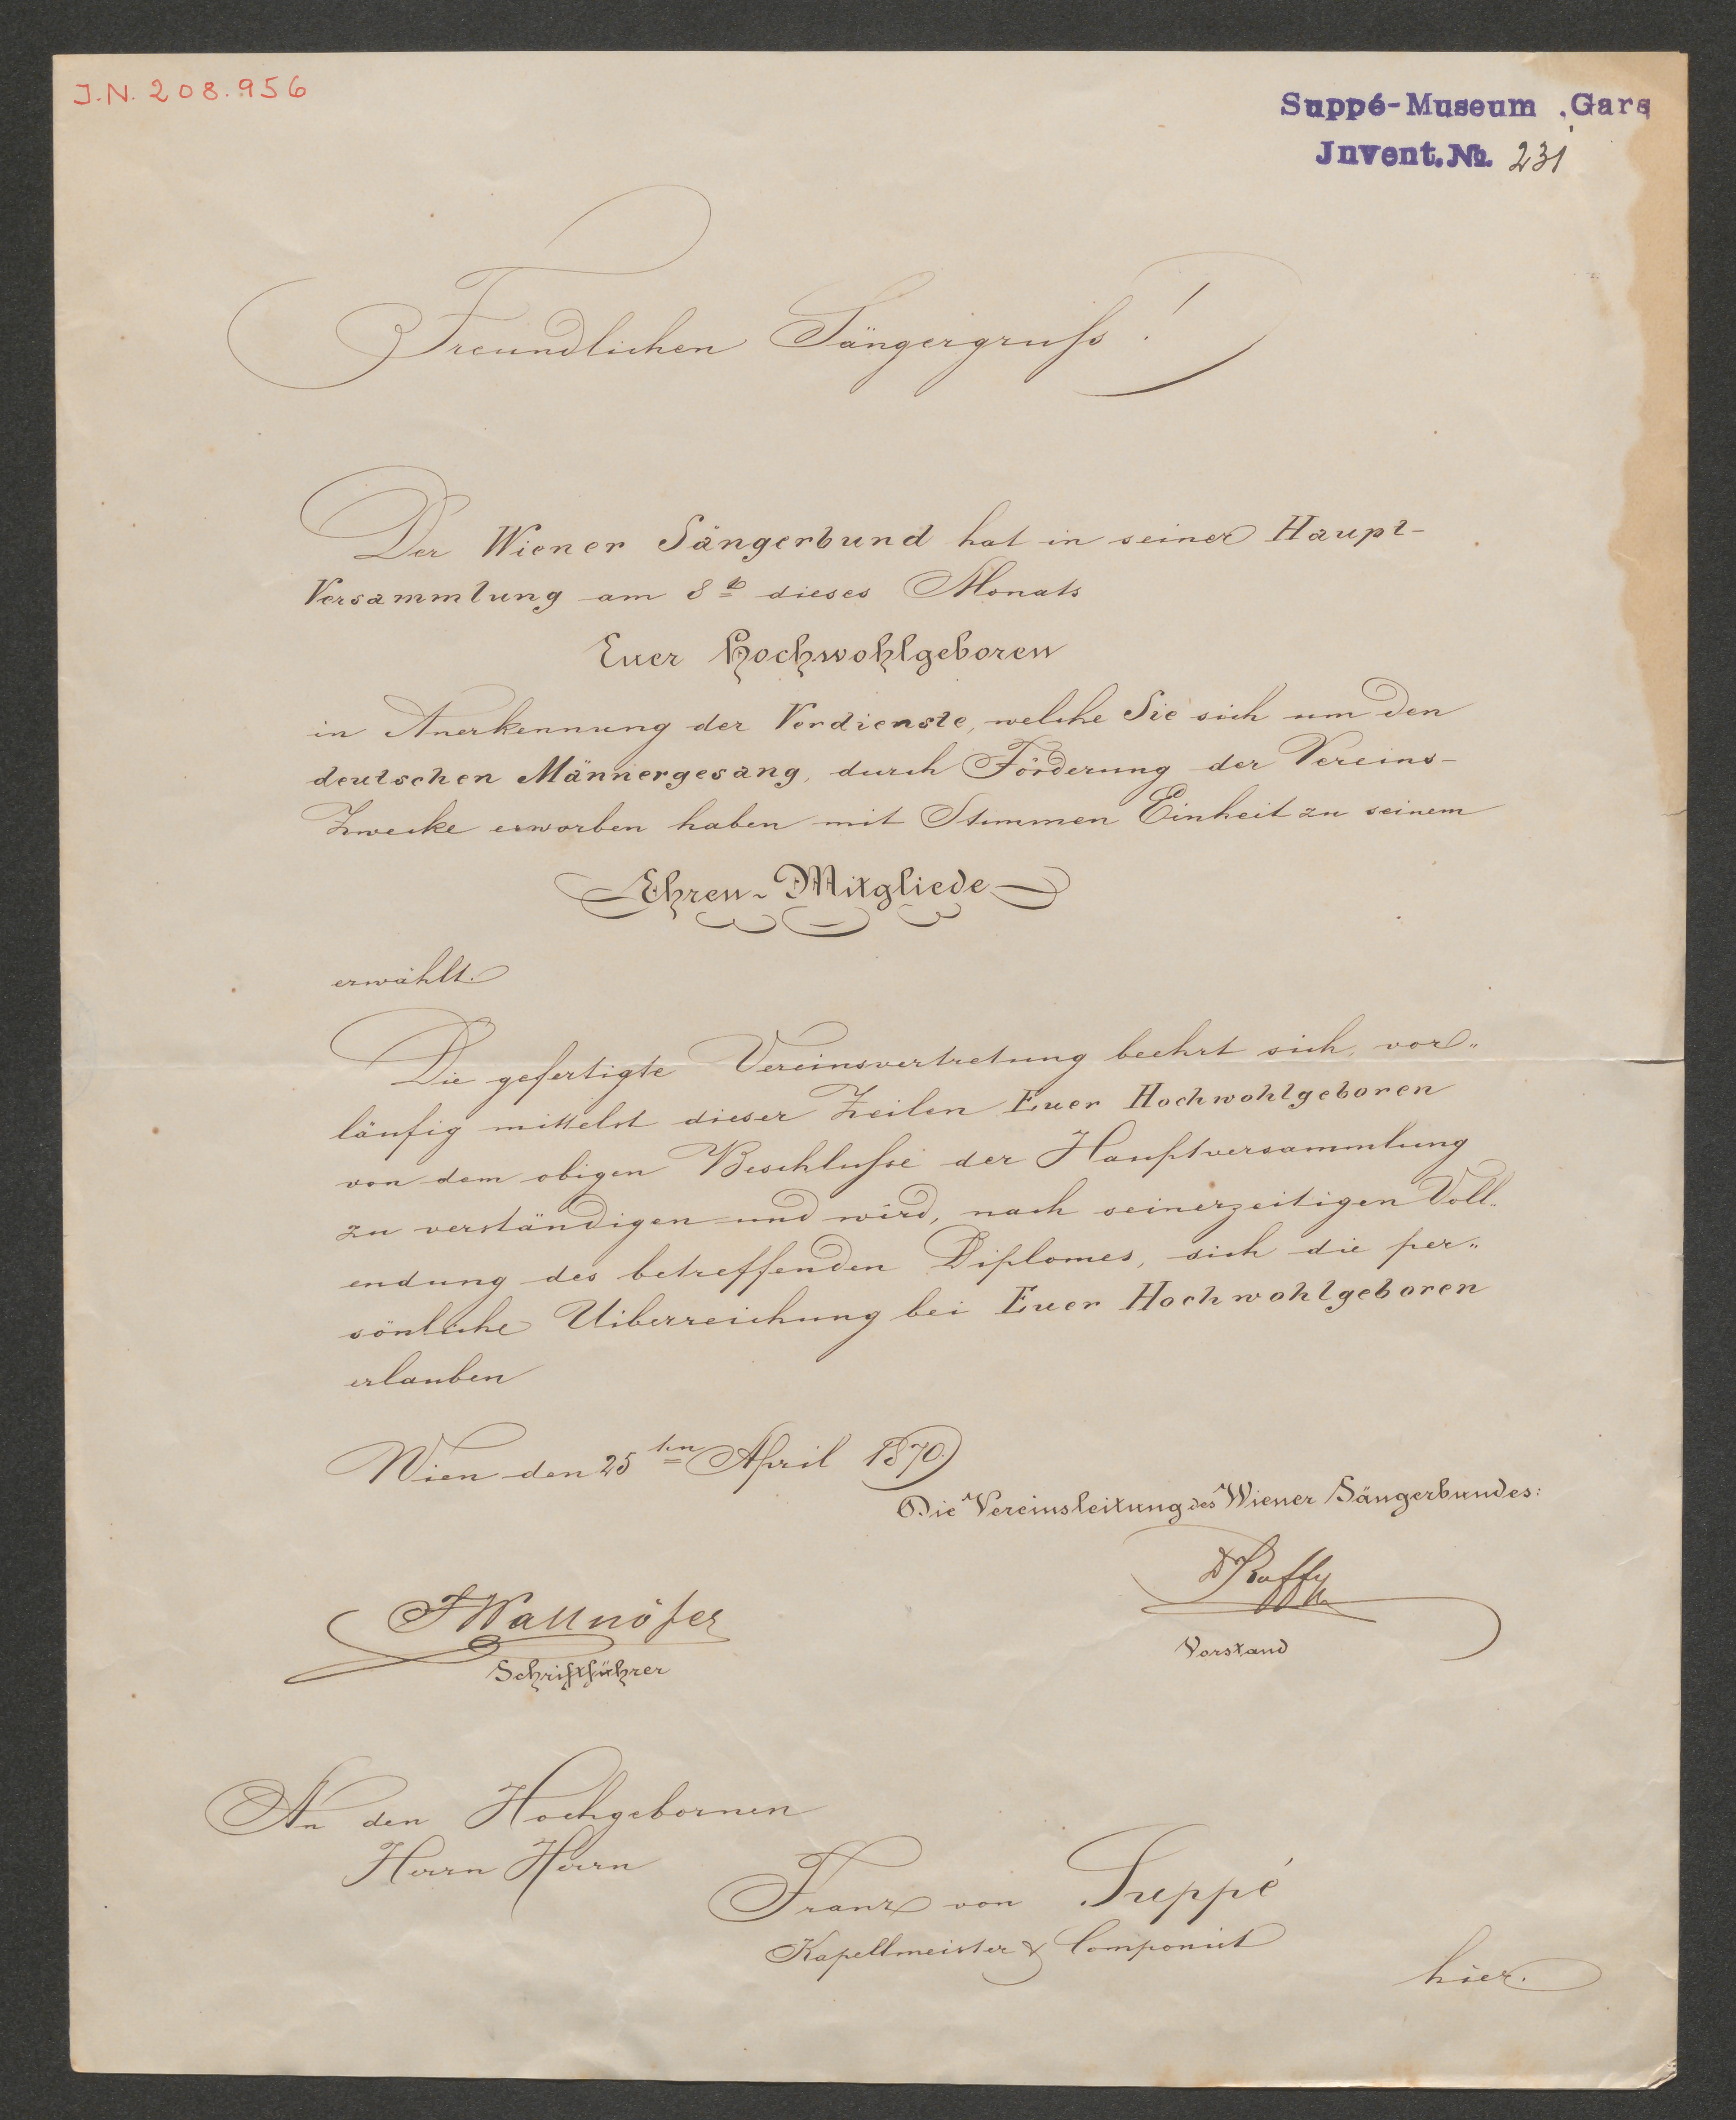 J.N. 208.956
Suppé-Museum, Gars
Jnvent.No. 231
Freundlichen Sängergruß!
Der Wiener Sängerbund hat in seiner Haupt-
Versammlung am 8t dieses Monats
Euer Hochwohlgeboren
in Anerkennung der Verdienste, welche Sie sich um den
deutschen Männergesang, durch Förderung der Vereins-
Zwecke erworben haben mit Stimmen Einheit zu seinem
Ehren-Mitgliede
erwählt.
Die gefertigte Vereinsvertretung beehrt sich, vor„
läufig mittelst dieser Zeilen Euer Hochwohlgeboren
von dem obigen Beschluße der Hauptversammlung
zu verständigen und wird, nach seinerzeitigen Voll„
endung des betreffenden Diplomes, sich die per„
sönliche Uiberreichung bei Euer Hochwohlgeboren
erlauben
Wien den 25ten April 1870
Die Vereinsleitung des Wiener Sängerbundes:
Wallnöfer
Schriftführer
Vorstand
An den Hochgebornen
Herrn Herrn
Franz von Suppé
Kapellmeister & Componist
hier.